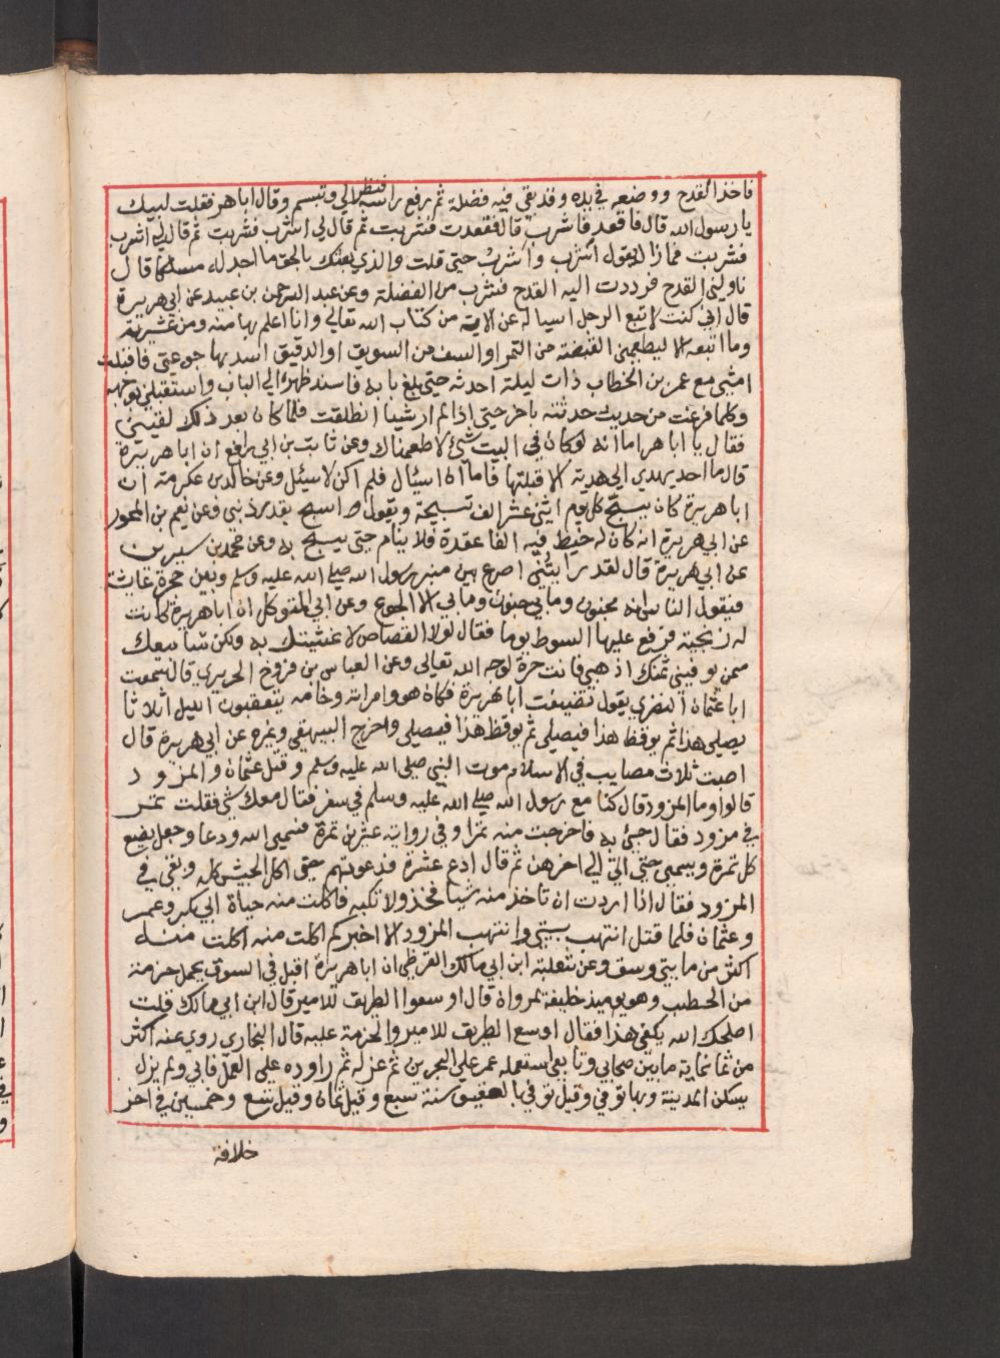 فاخذ القدح ووضعه في يده وقد بقي فيه فضلة ثم رفع راسه فنظر الي وتبسم وقال اباهر فقلت لبيك
يا رسول الله قال فاقعد فاشرب قال فقعدت فشربت ثم قال لي اشرب فشربت ثم قال لي اشرب
فشربت فما زال يقول اشرب واشرب حتى قلت والذي بعثك بالحق ما اجد له مسلكا قال
ناوليني القدح فرددت اليه القدح فشرب من الفضلة وعن عبد الرحمن بن عبيد عن ابي هريرة
قال اني كنت لاتبع الرجل اسياله عن الاية من كتاب الله تعالى وانا اعلم بها منه ومن عشيرته
وما اتبعه الا ليطعمني القبضة من التمر او السف من السويق او الدقيق اسد بها جوعتي فاقبلت
امشي مع عمر بن الخطاب ذات ليلة احدثه حتى بلغ بابه فاسند ظهره الى الباب واستقبلني بوجهه
وكلما فرغت من حديث حدثته باخر حتى اذا لم ار شيا انطلقت فلما كان بعد ذلك لقيني
فقال يا اباهر اما انه لو كان في البيت شئ لاطعمناك وعن ثابت بن ابي رافع ان ابا هريرة
قال ما احد يهدي الي هدية الا قبلتها فاما ان اسئال فلم اكن لاسيئل وعن خالد بن عكرمة ان
ابا هريرة كان يسبح كل يوم اثني عشر الف تسبيحة ويقول اسبح بقدر ذنبي وعن نعيم بن المحرر
عن ابي هريرة انه كان له خيط فيه الفا عقدة فلا ينام حتى يسبح به وعن محمد بن سيرين
عن ابي هريرة قال لقد رايتني اصرع بين منبر رسول الله صلى الله عليه وسلم وبين حجرة عايشة
فيقول الناس انه مجنون وما بي جنون وما بي الا الجوع وعن ابي المتوكل ان ابا هريرة كانت
له زنجية فرفع عليها السوط يوما فقال لولا القصاص لاغشيتك به ولكن سابيعك
ممن يوفيني ثمنك اذهبي فانت حرة لوجه الله تعالى وعن العباس بن فروخ الجريري قال سمعت
ابا عثمان النضري يقول تضيفت ابا هريرة فكان هو وامراته وخادمه يتعقبون الليل اثلاثا
يصلي هذا ثم يوقظ هذا فيصلي ثم يوقظ هذا فيصلي واخرج البيهقي وغيره عن ابي هريرة قال
اصبت ثلاث مصايب في الاسلام موت النبي صلى الله عليه وسلم وقتل عثمان والمزود
قالوا وما المزود قال كنا مع رسول الله صلى الله عليه وسلم في سفر فقال معك شي فقلت تمر
في مزود فقال جئ به فاخرجت منه تمرا وفي رواية عشرين تمرة فسمى الله ودعا وجعل يضع
كل تمرة ويسمي حتى اتى الى اخرهن ثم قال ادع عشرة فدعوتهم حتى اكل الجيش كله وبقي في
المزود فقال اذا اردت ان تاخذ منه شيا فخذ ولا تكبه فاكلت منه حياة ابي بكر وعمر
وعثمان فلما قتل انتهب بيتي وانتهب المزود الا اخبركم اكلت منه اكلت منه
اكثر من مايتي وسق وعن ثعلبة ابن ابي مالك القرظي ان ابا هريرة اقبل في السوق يحمل حزمة
من الحطب وهو يوميذ خليفة لمروان قال اوسعوا الطريق للامير قال ابن ابي مالك قلت
اصلحك الله يكفي هذا فقال اوسع الطريق للامير والحزمة عليه قال البخاري روى عنه اكثر
من ثمانماية ما بين صحابي وتابعي استعمله عمر على البحرين ثم عزله ثم راوده على العمل فابى ولم يزل
يسكن المدينة وبها توفي وقيل توفي بالعقيق سنة سبع وقيل ثمان وقيل تسع وخمسين في اخر
خلافة